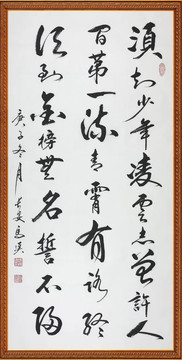 須知少年凌雲志曾許人
間第一流青霄有路終
須到金榜無名誓不歸
庚子冬月長安馬